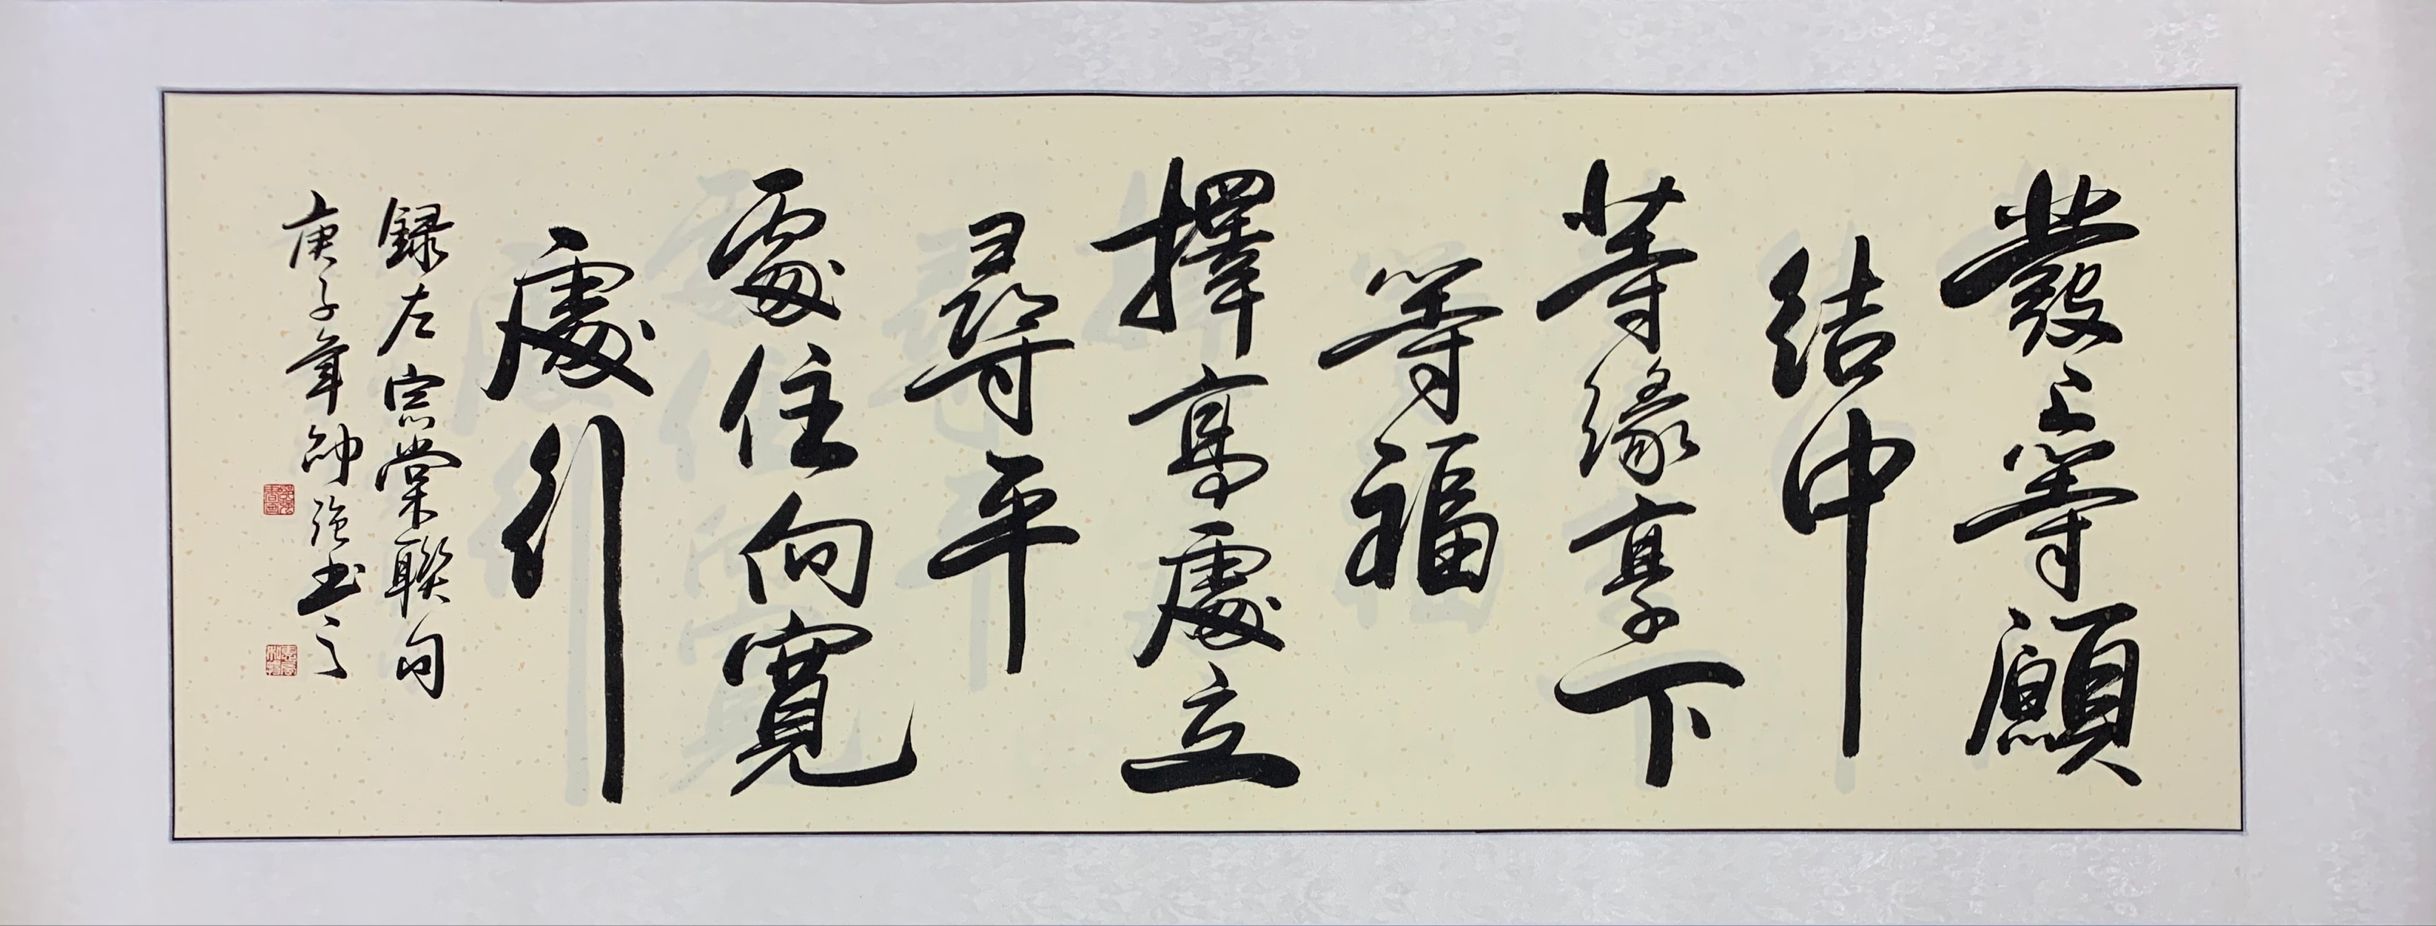 發上等願
結中
等緣享下
等福
擇高處立
尋平
處住向寬
處行
録左宗棠聯句
庚子年帥強書之